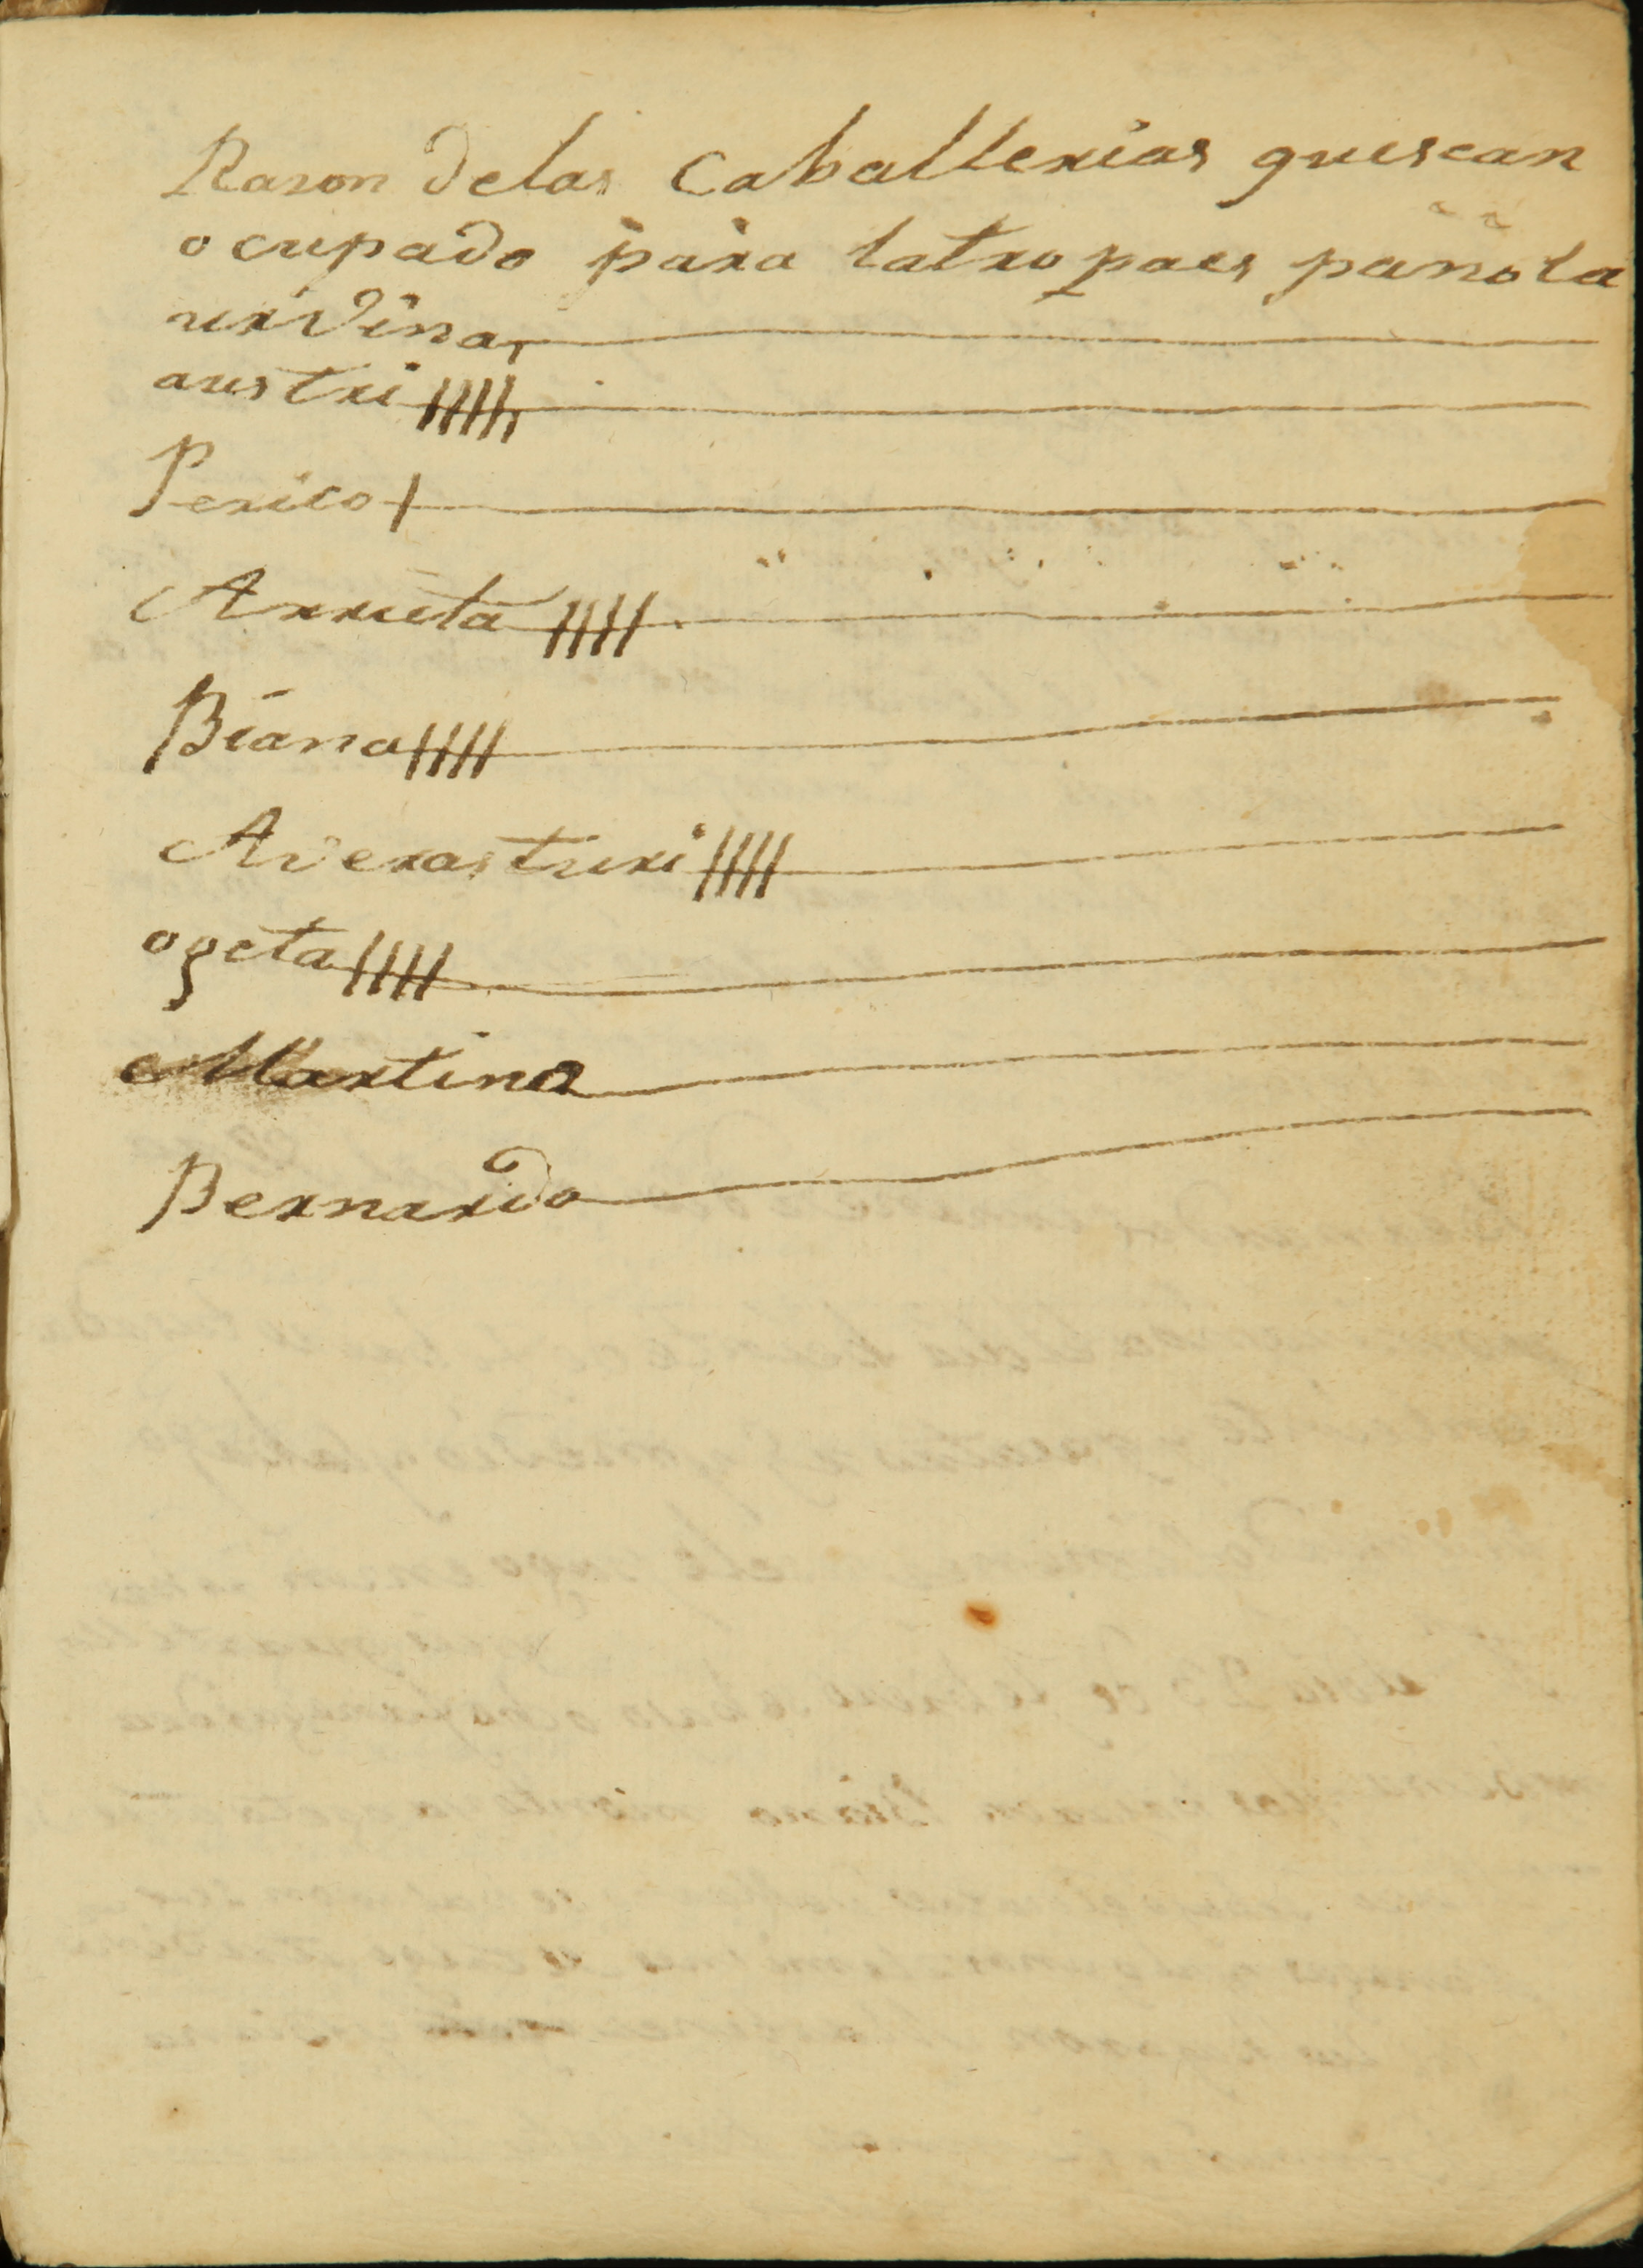 Rason delas caballerias quesean
ocupado para latropaes pañola
urvina
austri
Perico
Arrieta
Biana
Averasturi
ogeta
Martina
Bernardo